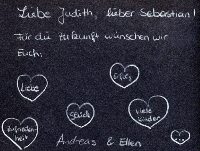 Liebe Judith, lieber Sebastian!
Für die Zukunft wünschen wir
Euch:
Liebe
Erfolg
Glück
viele Kinder
Zufriedenheit
...
Andreas & Ellen